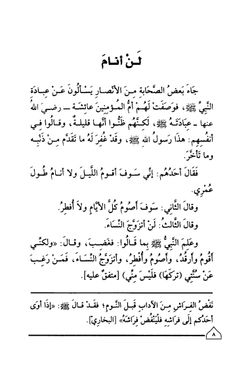 لَنْ أنَامَ
جَاءَ بَعضُ الصَّحَابَةِ مِنَ الأنْصَارِ يَسْألُونَ عَنْ عِبادَةِ
النَّبِيِّ ﷺ، فَوَصَفَتْ لَهُمْ أُمُّ المُؤْمِنِينَ عَائِشَةُ ــ رضي الله
عنها ــ عِبَادَتَهُ ﷺ، لَكِنَّهُم ظَنُّوا أنَّها قَليلةٌ، وقَالُوا فِي
أنفُسِهِم: هَذَا رَسولُ اللهِ ﷺ، وَقَدْ غُفِرَ لَهُ ما تَقَدَّم مِن ذَنْبِه
وما تَأخَّرَ.
فَقَالَ أحَدُهُم: إنِّي سَوفَ أقومُ اللَّيلَ ولا أنامُ طُولَ
عُمْرِي.
وقَالَ الثَّانِي: سَوفَ أصُومُ كُلَّ الأيَّامِ ولاَ أُفطِرُ.
وقَالَ الثَّالثُ: لَنْ أتزَوَّجَ النِّسَاءَ.
وعَلِمَ النَّبيُّ ﷺ بِمَا قَالُوا: فَغَضِبَ، وقَالَ: «ولكنِّي
أقُومُ وأرقُدُ، وأصُومُ وأُفْطِرُ، وأتزَوَّجُ النِّسَاءَ، فَمَنْ رَغِبَ
عَنْ سُنَّتِي (تركَهَا) فَلَيْسَ مِنِّي) [متفق عليه].
نَفْضُ الفِرَاشِ مِنَ الآدابِ قَبلَ النَّومِ؛ فَقَدْ قَالَ ﷺ: «إذَا أوَى
أحَدُكُم إلَى فراشِهِ فَلْيَنْفُضْ فِرَاشَهُ» [البخاري].
٨